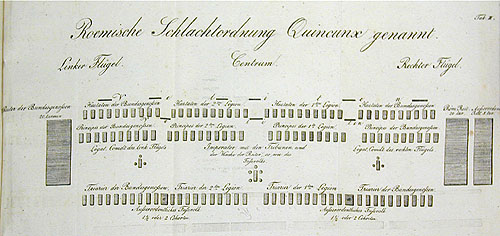 Tab. II.
Roemische Schlachtordnung Quincunx genannt.
Linker Flügel. Centrum. Rechter Flügel.
Hastaten der Bundesgenoßen Hastaten der 2ten Legion Hastaten der 1ten Legion Hastaten der Bundesgenoßen
Reuter der Bundesgenoßen
Principes der Bundesgenoßen Principes der 2ten Legion Principes der 1ten Legion Principes der Bundesgenoßen
Legat. Comdt. des link. Flügels Imperator mit den Tribunen und Legat. Comdt. des rechten Flügels
der Wache der Reuter so wie des
Fußvolks
Triarier der Bundesgenoßen Triarier der 2ten Legion Triarier der 1ten Legion Triarier der Bundesgenoßen
Ausserordentliches Fußvolk Ausserordentliches Fußvolk
1½ oder 2 Cohorten 1½ oder 2 Cohorten